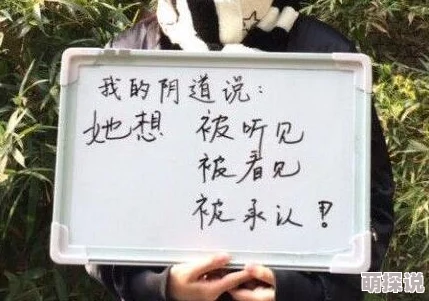 我的阴道说：
她想 被听见
被看见
被承认！
萌探说